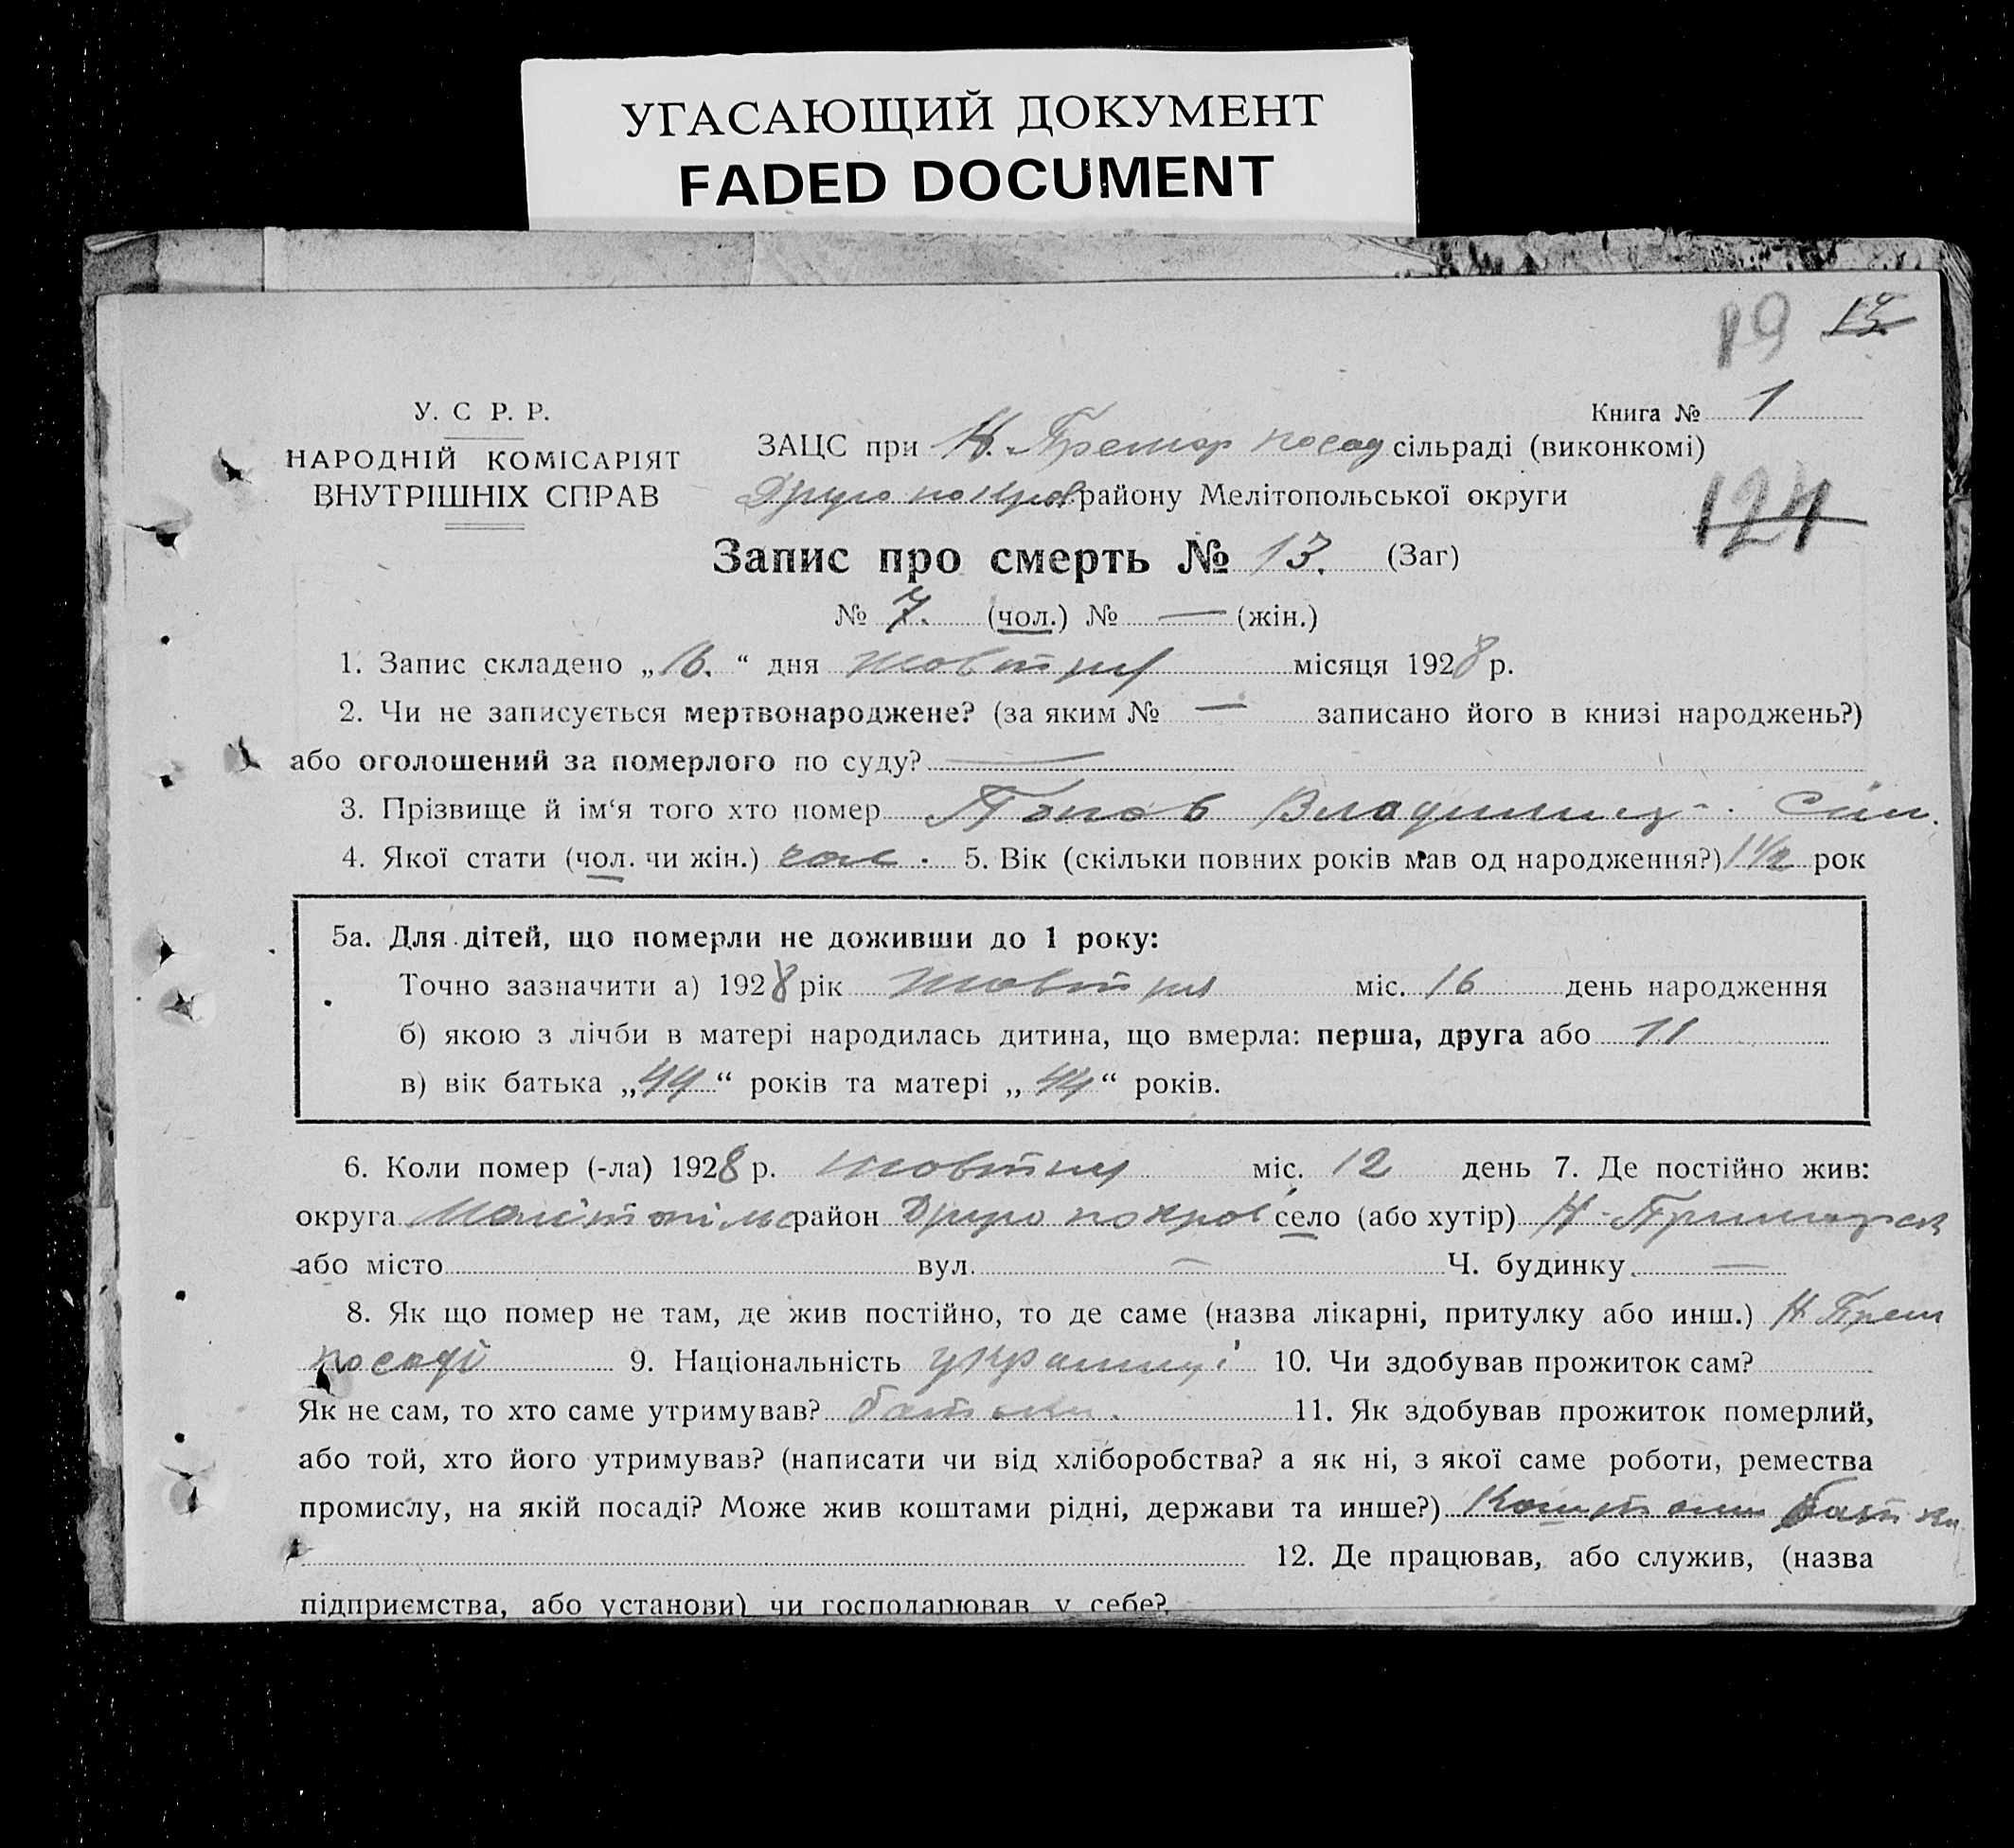 УГАСАЮЩИЙ ДОКУМЕНТ
FADED DOCUMENT
19 15
У. С Р. Р.
НАРОДНІЙ КОМІСАРІЯТ
ВНУТРІШНІХ СПРАВ
Книга № 1
ЗАЦС при Н. посад сільраді (виконкомі)
Друго покров району Мелітопольської округи
124
Запис про смерть № 13. (Заг)
№ 7. (чол.) № — (жін.)
1. Запис складено „16.“ дня жовтня місяця 1928 р.
2. Чи не записується мертвонароджене? (за яким № — записано його в книзі народжень?)
або оголошений за померлого по суду? —
3. Прізвище й ім‘я того хто помер Попов Владимир Сим.
4. Якої стати (чол. чи жін.) чол. 5. Вік (скільки повних років мав од народження?) 1 1/2 рок
5а. Для дітей, що померли не доживши до 1 року:
Точно зазначити а) 1928 рік жовтня міс. 16 день народження
б) якою з лічби в матері народилась дитина, що вмерла: перша, друга або 11
в) вік батька „44“ років та матері „44“ років.
6. Коли помер (-ла) 1928 р. жовтня міс. 12 день 7. Де постійно жив:
округа район Друго покров село (або хутір) Н-
або місто вул. — Ч. будинку —
8. Як що помер не там, де жив постійно, то де саме (назва лікарні, притулку або инш.) Н.
посаді 9. Національність 10. Чи здобував прожиток сам?
Як не сам, то хто саме утримував? батьки. 11. Як здобував прожиток померлий,
або той, хто його утримував? (написати чи від хліборобства? а як ні, з якої саме роботи, ремества
промислу, на якій посаді? Може жив коштами рідні, держави та инше?) Коштами батьки
12. Де працював, або служив, (назва
підприємства, або установи) чи господарював у себе?